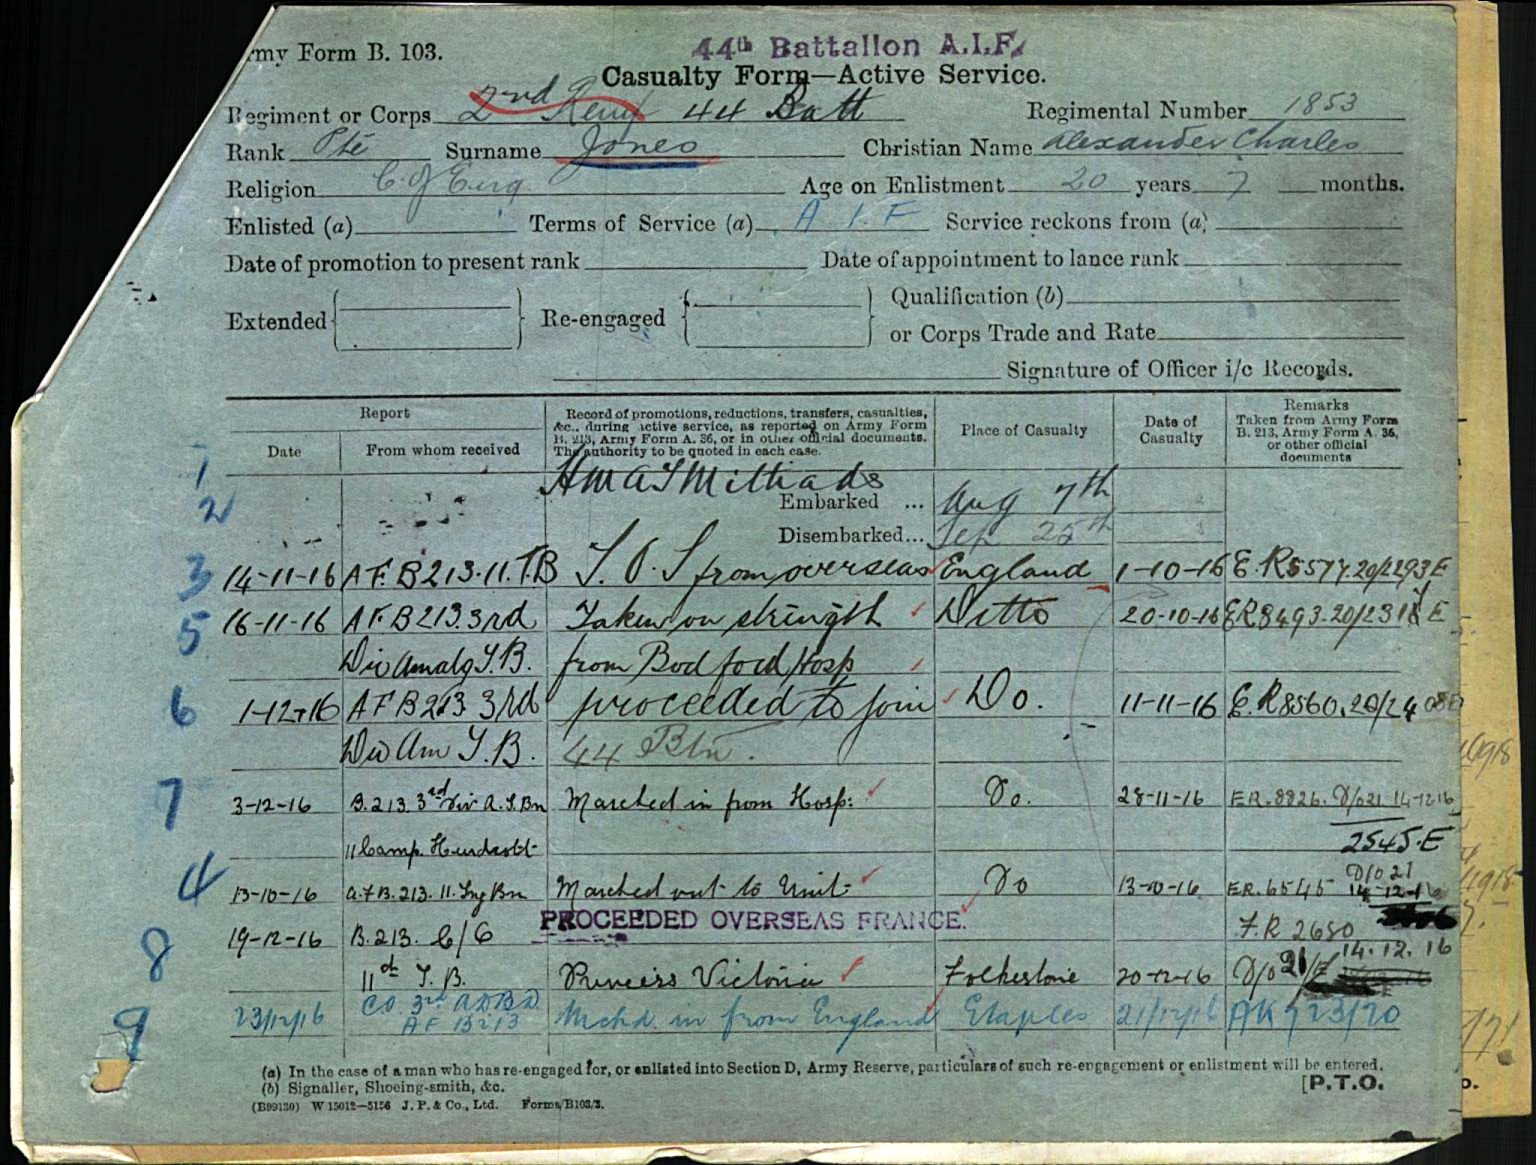 rmy Form B. 103.
44th Battalion A.I.F.
Casualty Form—Active Service.
Regiment or Corps 2nd Reinf 44 Batt Regimental Number 1853
Rank Pte Surname Jones Christian Name Alexander Charles
Religion C. of Eng. Age on Enlistment 20 years 7 months.
Enlisted (a) Terms of Service (a) A I F Service reckons from (a)
Date of promotion to present rank Date of appointment to lance rank
Extended Re-engaged Qualification (b)
or Corps Trade and Rate
Signature of Officer i/c Records.
Report
Date From whom received
Record of promotions, reductions, transfers, casualties,
&c., during active service, as reported on Army Form
B. 213, Army Form A. 36, or in other official documents.
The authority to be quoted in each case.
Place of Casualty
Date of
Casualty
Remarks
Taken from Army Form
B. 213, Army Form A. 36,
or other official
documents
1 HMAT Miltiades
2 Embarked ... Aug 7th
Disembarked... Sep 25th
3 14-11-16 A.F.B213.11.T.B T.O.S from overseas England 1-10-16 E.R5577.20/2293E
5 16-11-16 A.F.B213 3rd Taken on strength Ditto 20-10-16 ER8493.20/231 E
Div Amalg T.B. from Bodford Hosp
6 1-12-16 A F B 213 3rd proceeded to join Do. 11-11-16 E.R8560.20/24
Div Am T.B. 44 Btn.
7 3-12-16 B.213. 3rd Div A.T.Bn Marched in from Hosp: Do. 28-11-16 ER.8826. D/021 14-12-16
2545.E
Camp. Hurdcott
4 13-10-16 A.F.B.213. 11. Trg Bn Marched out to Unit Do 13-10-16 E.R. 6545 D/021
14-12-16
PROCEEDED OVERSEAS FRANCE.
8 19-12-16 B.213. F.R 2680
14.12.16
11th T.B. Princess Victoria Folkestone 20-12-16 D/0 21
9 23/12/16 CO. 3rd A.D.B.D. Mchd. in from England Etaples 21/12/16 AK 23/20
A F B213
(a) In the case of a man who has re-engaged for, or enlisted into Section D, Army Reserve, particulars of such re-engagement or enlistment will be entered.
(b) Signaller, Shoeing-smith, &c.
[P.T.O.
(B99130) W 15012—5156 J. P. & Co., Ltd. Forms/B103/3.